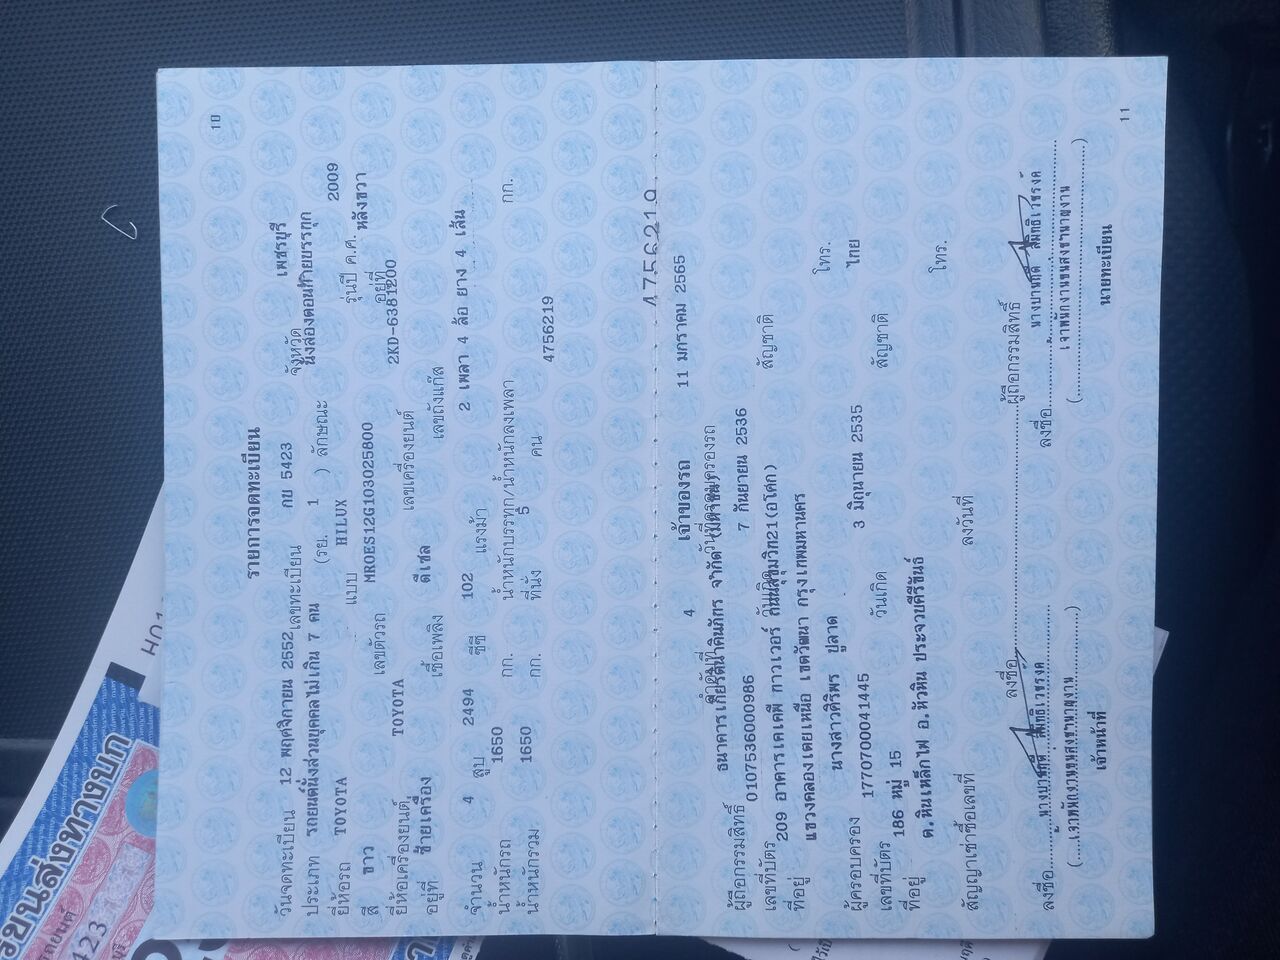 10
รายการจดทะเบียน
วันจดทะเบียน 12 พฤศจิกายน 2552 เลขทะเบียน กบ 5423 จังหวัด เพชรบุรี
ประเภท รถยนต์นั่งส่วนบุคคลไม่เกิน 7 คน (รย. 1 ) ลักษณะ นั่งสองตอนท้ายบรรทุก
ยี่ห้อรถ TOYOTA แบบ HILUX รุ่นปี ค.ศ. 2009
สี ขาว เลขตัวรถ MROES12G103025800 อยู่ที่ หลังขวา
ยี่ห้อเครื่องยนต์ TOYOTA เลขเครื่องยนต์ 2KD-6381200
อยู่ที่ ซ้ายเครื่อง เชื้อเพลิง ดีเซล เลขถังแก๊ส
จำนวน 4 สูบ 2494 ซีซี 102 แรงม้า 2 เพลา 4 ล้อ ยาง 4 เส้น
น้ำหนักรถ 1650 กก. น้ำหนักบรรทุก/น้ำหนักลงเพลา กก.
น้ำหนักรวม 1650 กก. ที่นั่ง 5 คน
4756219
เจ้าของรถ
ลำดับที่ 4 วันที่ครอบครองรถ 11 มกราคม 2565
ผู้ถือกรรมสิทธิ์ ธนาคารเกียรตินาคินภัทร จำกัด (มหาชน)
เลขที่บัตร 0107536000986 วันเกิด 7 กันยายน 2536 สัญชาติ
ที่อยู่ 209 อาคารเคเคพี ทาวเวอร์ ถนนสุขุมวิท21(อโศก)
แขวงคลองเตยเหนือ เขตวัฒนา กรุงเทพมหานคร โทร.
ผู้ครอบครอง นางสาวศิริพร ปูลาด
เลขที่บัตร 1770700041445 วันเกิด 3 มิถุนายน 2535 สัญชาติ ไทย
ที่อยู่ 186 หมู่ 15
ต.หินเหล็กไฟ อ.หัวหิน ประจวบคีรีขันธ์ โทร.
สัญญาเช่าซื้อเลขที่ ลงวันที่
ลงชื่อ ผู้ถือกรรมสิทธิ์
ลงชื่อ ลงชื่อ
(เจ้าพนักงานขนส่งชำนาญงาน) เจ้าพนักงานขนส่งชำนาญงาน
เจ้าหน้าที่ นายทะเบียน
11